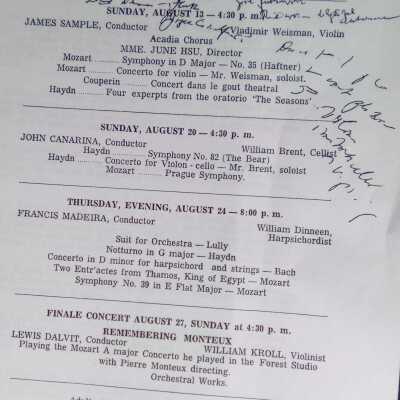 SUNDAY, AUGUST 13 — 4:30 p. m.
JAMES SAMPLE, Conductor Vladmir Weisman, Violin
Acadia Chorus
MME. JUNE HSU, Director
Mozart ........ Symphony in D Major — No. 35 (Haftner)
Mozart ........ Concerto for violin — Mr. Weisman, soloist.
Couperin ........ Concert dans le gout theatral
Haydn ........ Four experpts from the oratorio 'The Seasons'.
SUNDAY, AUGUST 20 — 4:30 p. m.
JOHN CANARINA, Conductor William Brent, Cellist
Haydn ........ Symphony No. 82 (The Bear)
Haydn ........ Concerto for Violon - cello — Mr. Brent, soloist
Mozart ........ Prague Symphony.
THURSDAY, EVENING, AUGUST 24 — 8:00 p. m.
FRANCIS MADEIRA, Conductor William Dinneen,
Harpsichordist
Suit for Orchestra — Lully
Notturno in G major — Haydn
Concerto in D minor for harpsichord and strings — Bach
Two Entr'actes from Thamos, King of Egypt — Mozart
Symphony No. 39 in E Flat Major — Mozart
FINALE CONCERT AUGUST 27, SUNDAY at 4:30 p. m.
REMEMBERING MONTEUX
LEWIS DALVIT, Conductor WILLIAM KROLL, Violinist
Playing the Mozart A major Concerto he played in the Forest Studio
with Pierre Monteux directing.
Orchestral Works.